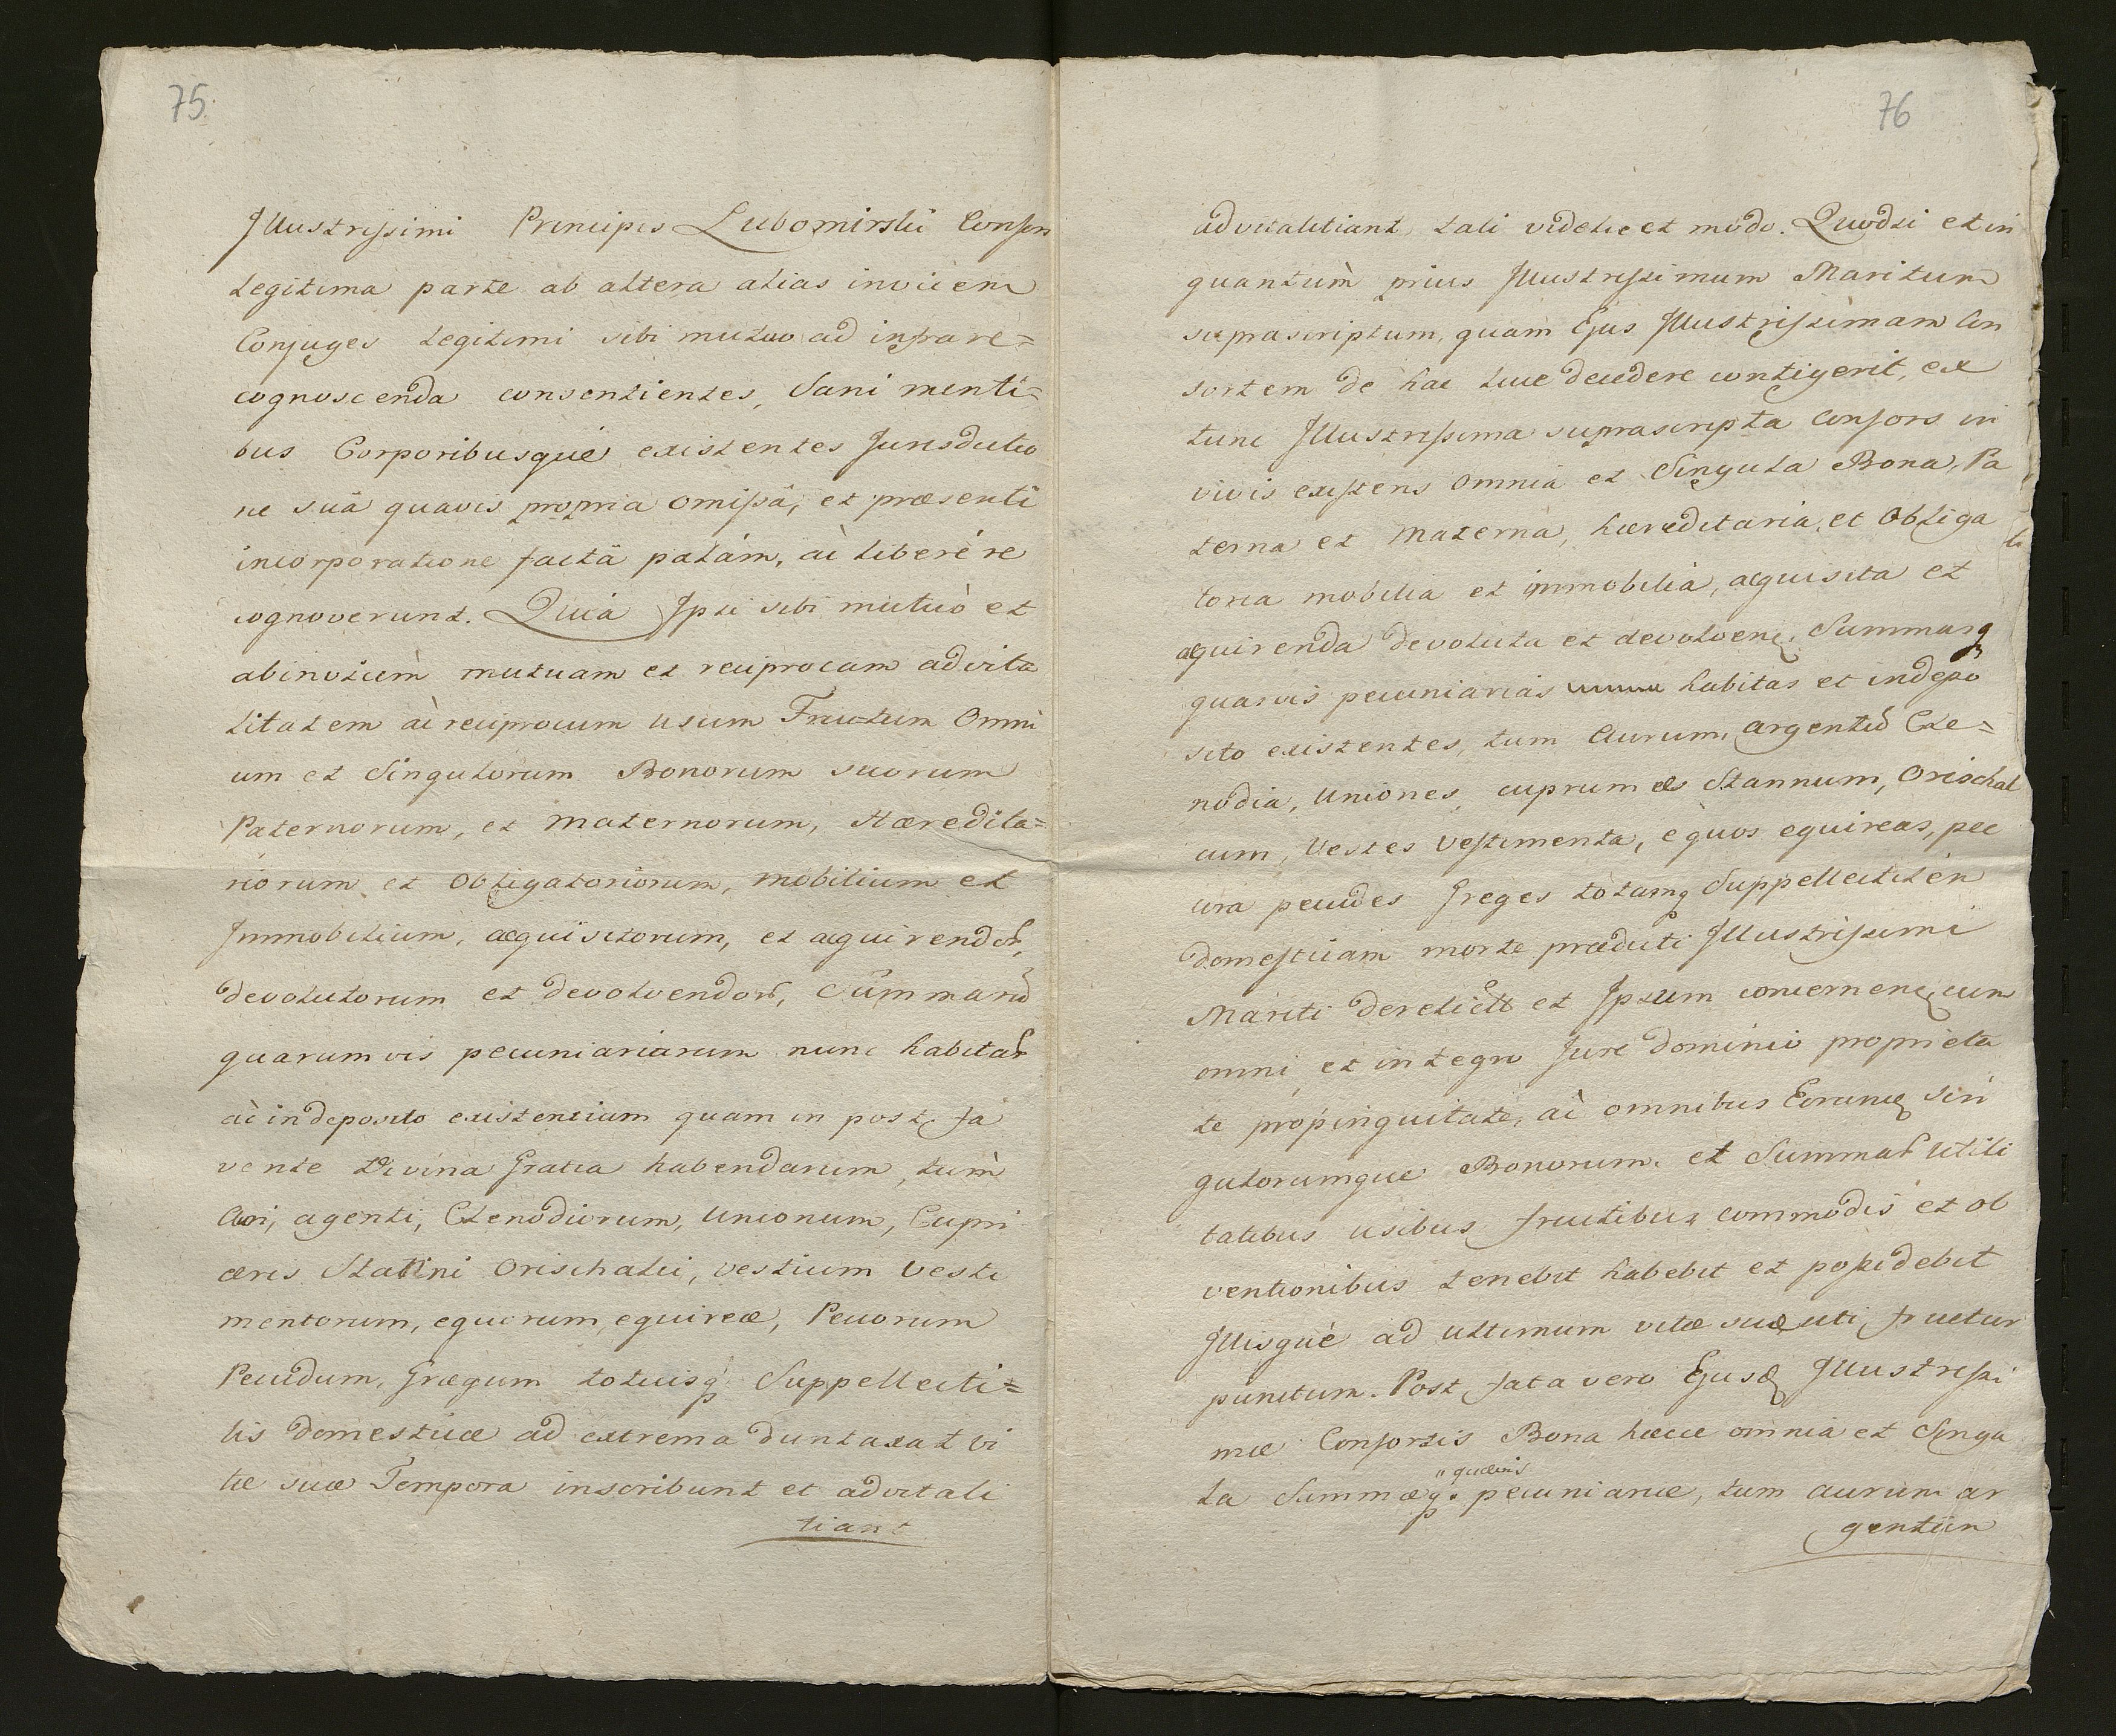 75.
Illustrissimi Principis Lubomirski Consors
Legitima parte ab altera alias invicem
Conjuges Legitimi sibi mutuo ad infra re=
cognoscenda consentientes, Sani menti=
bus Corporibusque existentes Jurisdictio
ne suâ quavis propria omissâ, et præsenti
incorporatione factâ palám, ac liberé re
cognoverunt. Quia Ipsi sibi mutuò et
abinvicem mutuam et reciprocam advita
litatem ac reciprocum usum Fructum Omni
um et Singulorum Bonorum suorum
Paternorum, et Maternorum, Hæredita=
riorum et Obligatoriorum, mobilium et
Immobilium, acquisitorum, et acquirendor,
devolutorum et devolvendor, Summarū
quarumvis pecuniariarum nunc habitar
ac in deposito existentium quam in post fa
vente Divina Gratia habendarum, tum
Auri, agenti, Clenodiorum, Unionum, Cupri
æris Stanni Orischalci, vestium Vesti
mentorum, equorum, equireæ, Pecorum
Pecudum, Grægum totiusq Suppellecti=
lis domesticæ ad extrema duntaxat vi
tæ suæ Tempora inscribunt et advitali
tiant
76
advitalitiant, tali videlicet modo. Quodsi et in
quantum prius Illustrissimum Maritum
suprascriptum, quam Ejus Illustrissimam Con
sortem de hac luce decedere contigerit, ex
tunc Illustrissima suprascripta Consors in
vivis existens Omnia et Singula Bona, Pa
terna et Materna, hæreditaria, et Obliga
toria mobilia et immobilia, acquisita et
acquirenda devoluta et devolvenc. Summasq
quasvis pecuniarias habitas et indepo
sito existentes, tum Aurum, argentū Cle=
nodia, Uniones, cuprum æs Stannum, Orischal
cum, Vestes Vestimenta, equos equireas, pec
cora pecudes Greges totamq Suppellectilén
domesticam morte prædicti Illustrissimi
Mariti derelict et Ipsum concernenc cum
omni et integro Jure dominio proprieta
te propinquitate, ac omnibus Eorund sin
gulorumque Bonorum. et Summar Utili
tatibus usibus fructibus commodis et ob
ventionibus tenebit habebit et possidebit
Illisquè ad ultimum vitæ suæ uti fruetur
punctum. Post fata vero Ejusd Illustrissi
mæ Consortis Bona hæce omnia et Singu
la Summæq " quævis pecuniariæ, tum aurum ar
gentun